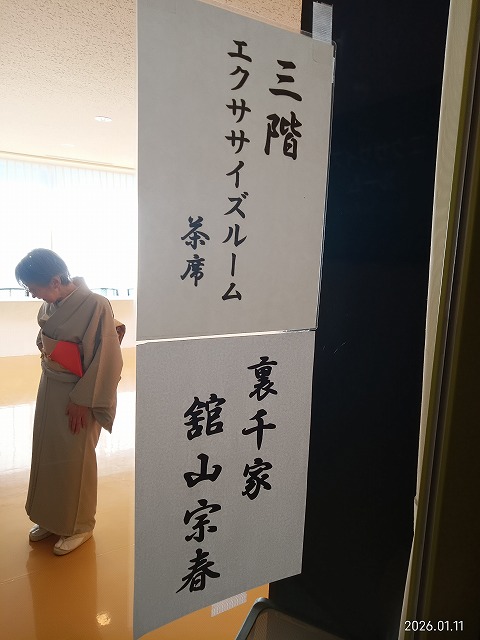 三階
エクササイズルーム
茶席
裏千家
舘山宗春
2026.01.11